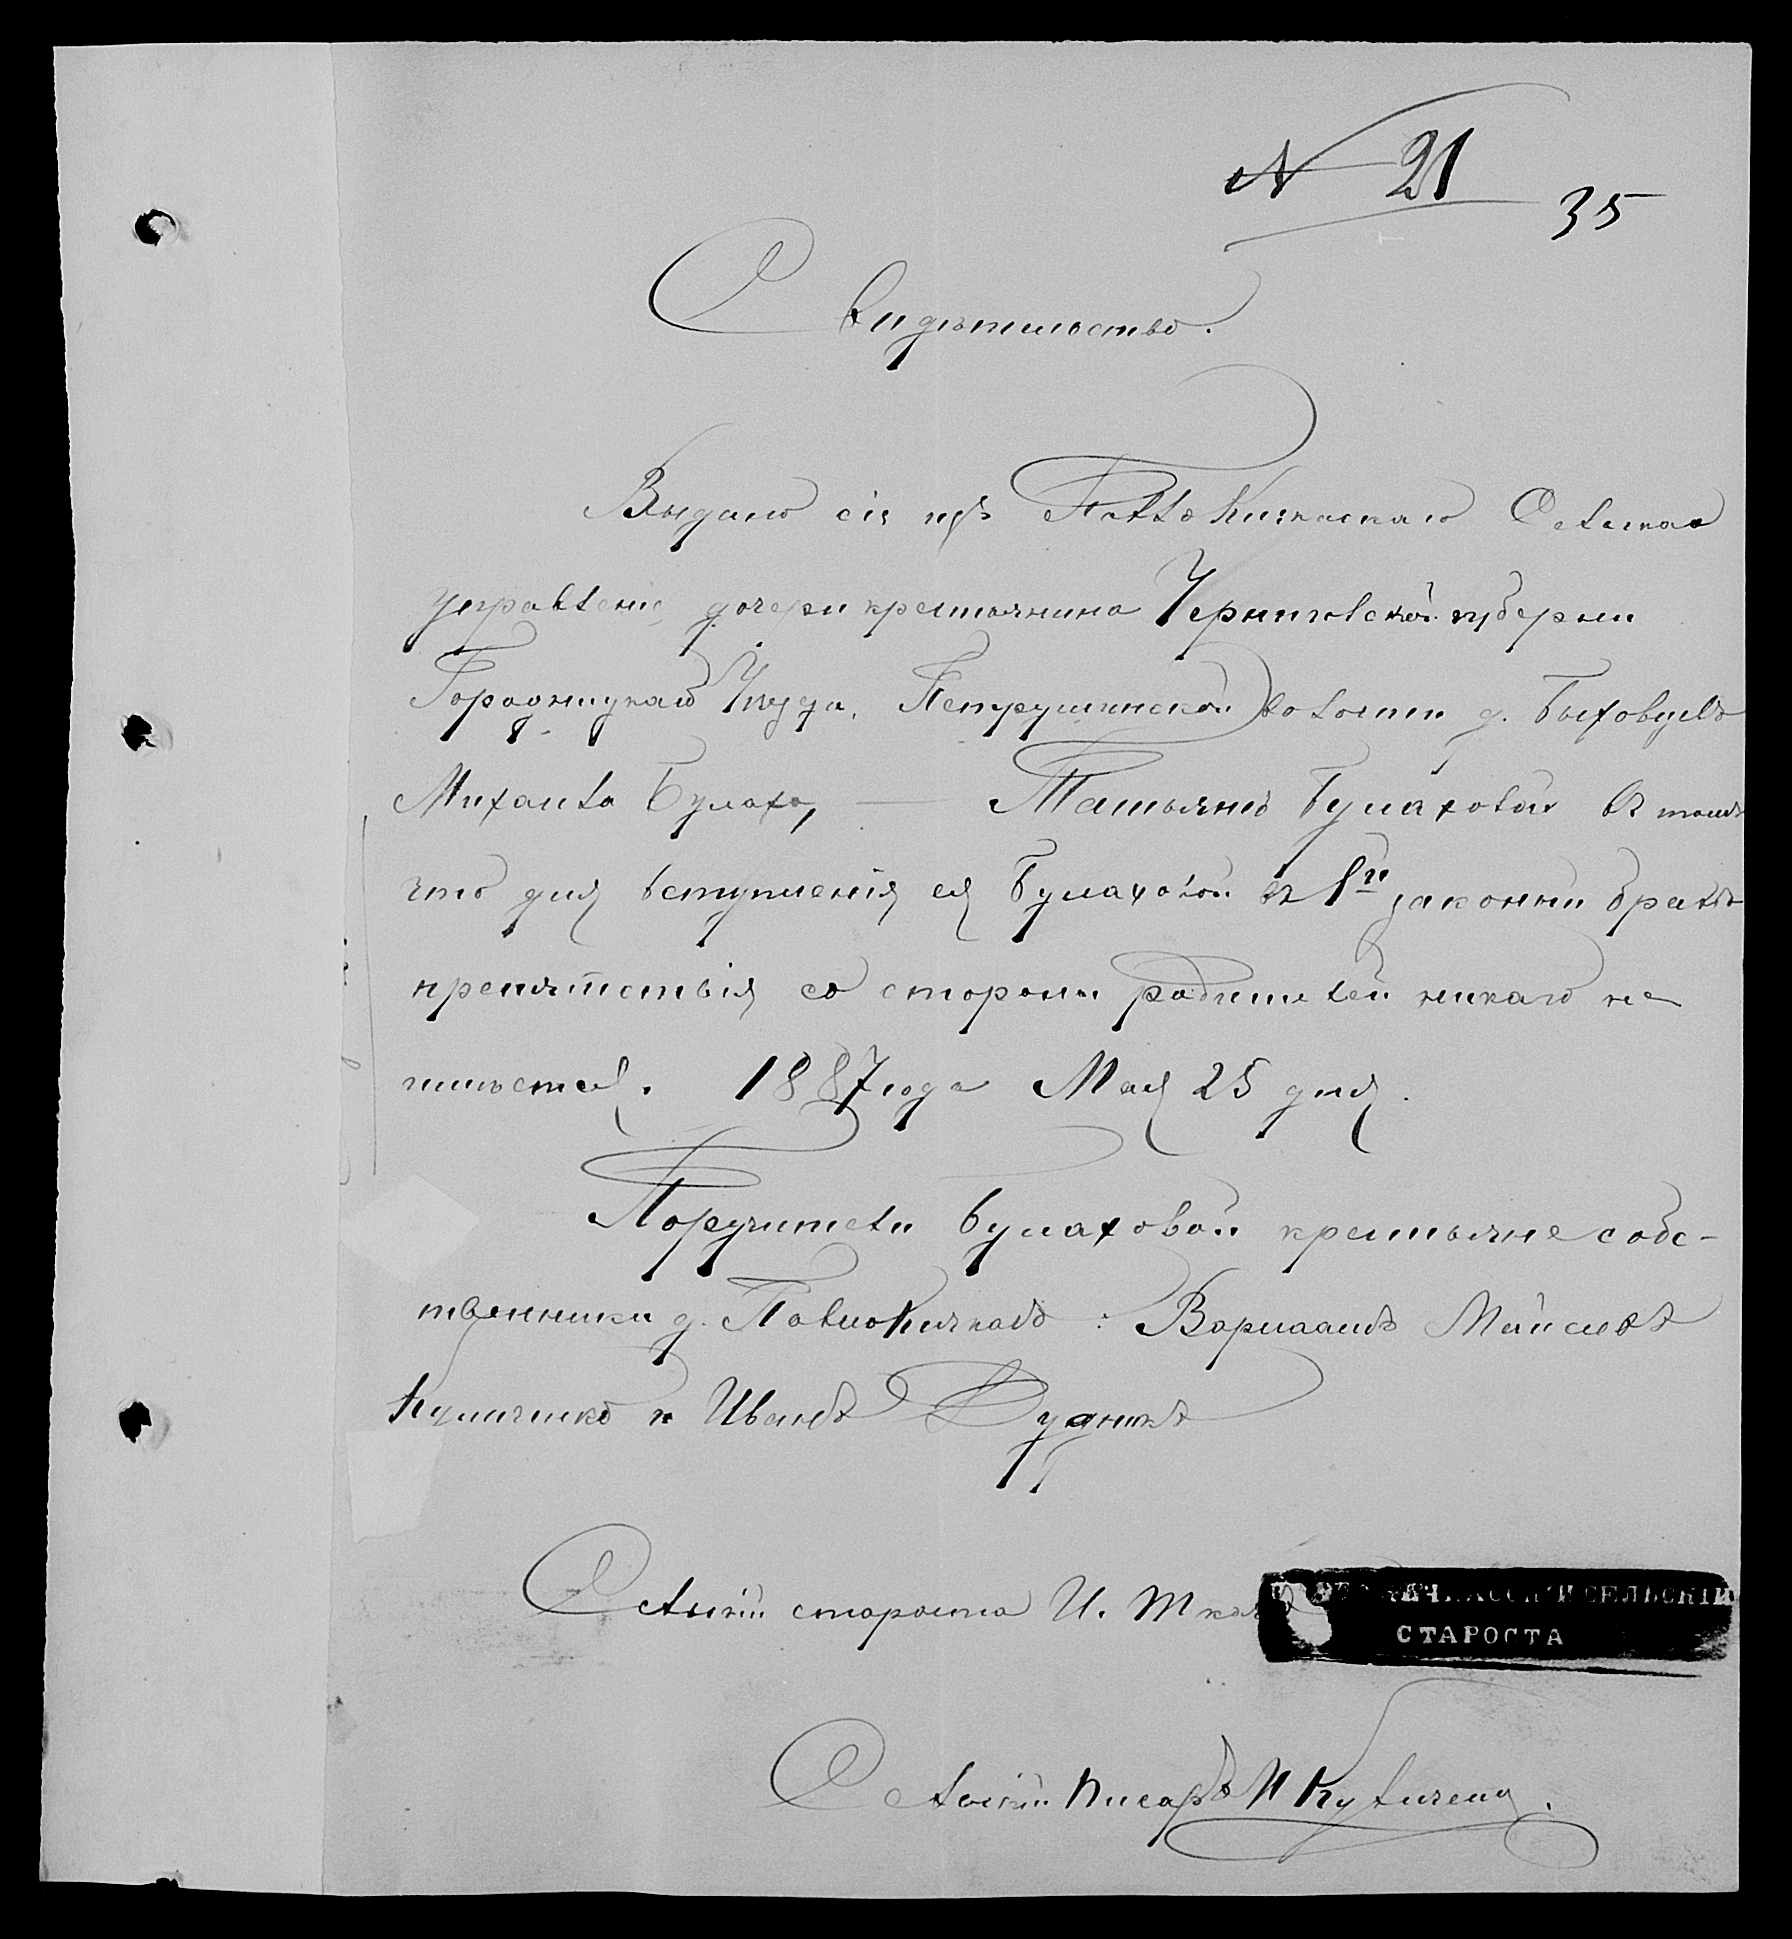 № 21
35
Свидѣтельство.
Выдано сіе изъ Павло Кичкаскаго Сельскаго
управленіе дочери крестьянина Черниговской губерніи
Городницкаго Уѣзда, Петрушинской волости д. Быховцевъ
Михаила Булаха, — Татьянѣ Булаховой въ томъ
что для вступленія ея Булаховой въ 1й законній бракъ
препятствія со стороны родителей никаго не
имѣется. 1887 года Мая 25 дня.
Поручители Булаховой крестьяне собс-
твенники д. Павлокичкасъ: Варлаамъ Мойсеевъ
Куличенко и Иванъ Рудникъ
Сельскій староста И.
КИЧКАССКІЙ СЕЛЬСКІЙ
СТАРОСТА
Сельскій Писарь И Куличенко.